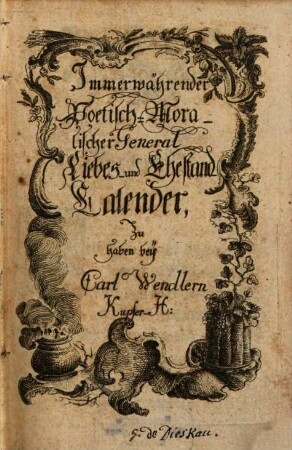 Immerwährender
Poetisch-Mora-
lischer General
Liebes und Ehestand
Calender,
Zu
haben bey
Carl Wendlern
Kupfer H:
G. de Dieskau.